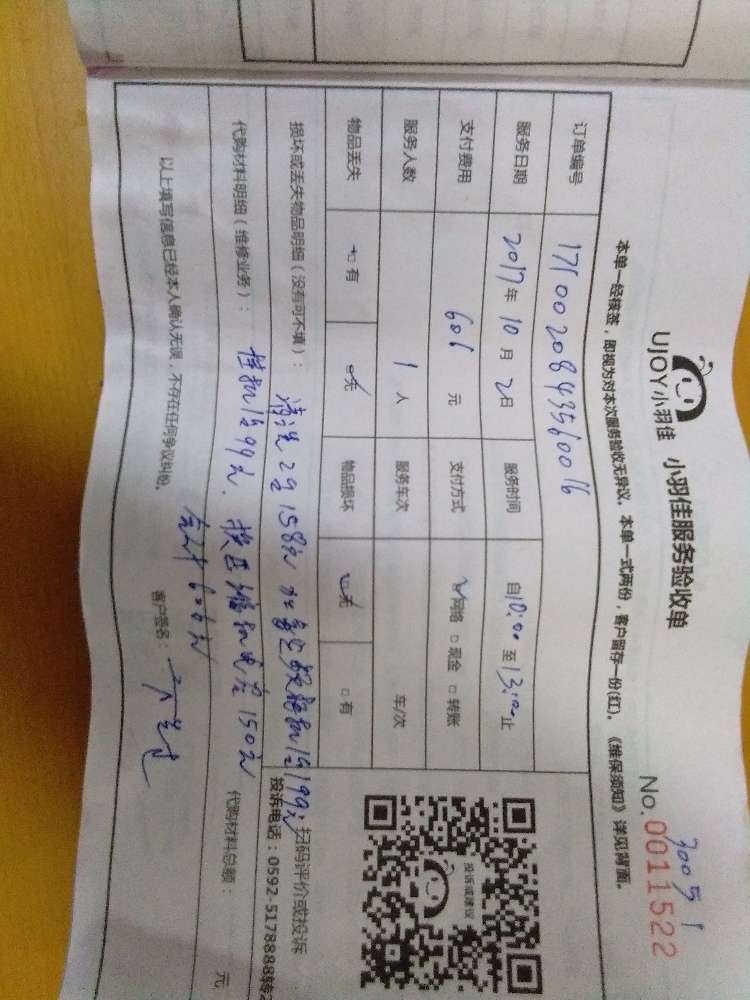 UJOY小羽佳 小羽佳服务验收单
No.0011522
本单一经核签,即视为对本次服务验收无异议。本单一式两份,客户留存一份(红)。《维保须知》详见背面。
订单编号 1710020843560016
服务日期 2017年10月2日 服务时间 自10:00至13:00止
支付费用 606元 支付方式 网络 □现金 □转账
服务人数 1人 服务车次 车/次
物品丢失 □有 □无 物品损坏 □无 □有
损坏或丢失物品明细(没有可不填): 清洗2台158元
代购材料明细(维修业务): 150元 代购材料总额: 元
合计606元
以上填写信息已经本人确认无误,不存在任何争议纠纷。 客户签名:
投诉或建议
扫码评价或投诉
投诉电话:0592-5178888转